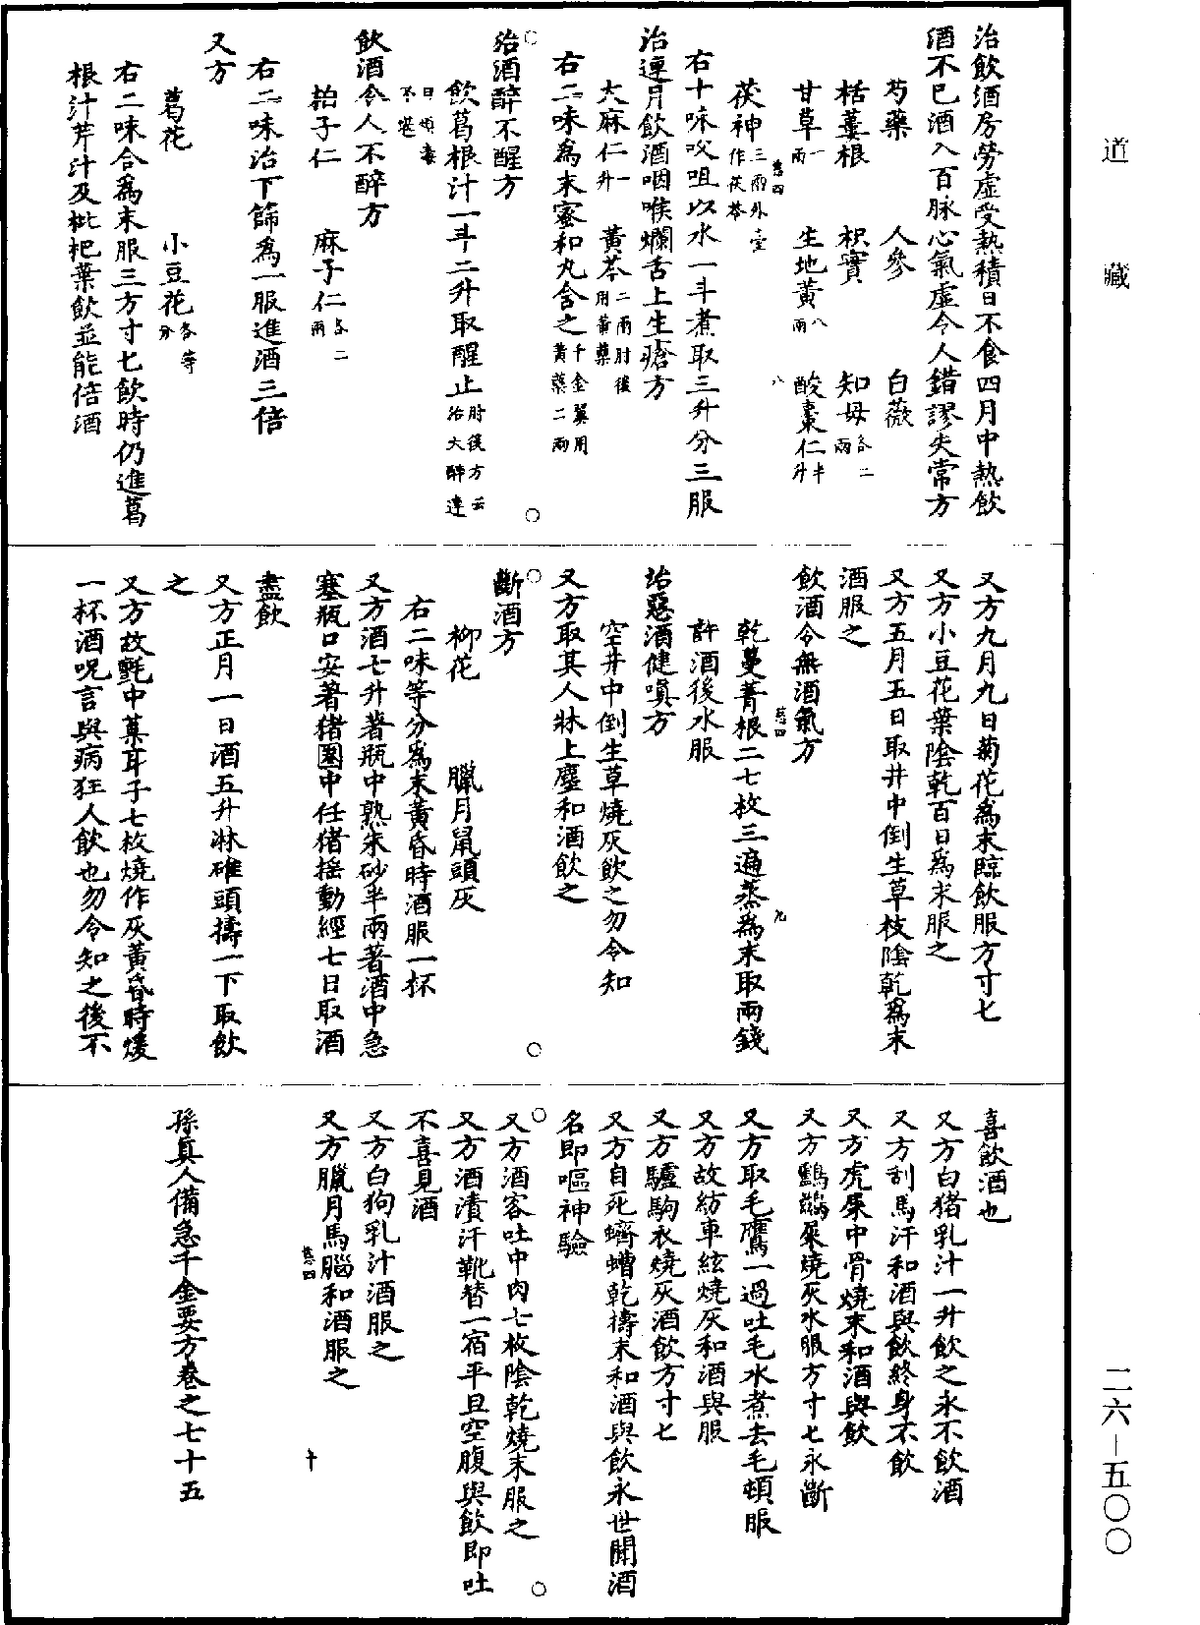 道藏
治飲酒房勞虛受熱積日不食四月中熱飲
酒不已酒入百脉心氣虛令人錯謬失常方
芍藥 人參 白薇
栝蔞根 枳實 知母各二兩
甘草一兩 生地黃八兩 酸棗仁半升
茯神三兩外臺作茯苓
右十味㕮咀以水一斗煮取三升分三服
治連月飲酒咽喉爛舌上生瘡方
大麻仁一升 黃芩二兩肘後用黃蘗
右二味爲末蜜和丸含之千金翼用黃蘗二兩
治酒醉不醒方
飲葛根汁一斗二升取醒止肘後方云治大醉連
日煩毒不堪
飲酒令人不醉方
柏子仁 麻子仁各二兩
右二味治下篩爲一服進酒三倍
又方
葛花 小豆花各等分
右二味合爲末服三方寸匕飲時仍進葛
根汁芹汁及枇杷葉飲並能倍酒
又方九月九日菊花爲末臨飲服方寸匕
又方小豆花葉陰乾百日爲末服之
又方五月五日取井中倒生草枝陰乾爲末
酒服之
飲酒令無酒氣方
乾蔓菁根二七枚三遍蒸爲末取兩錢
許酒後水服
治惡酒健嗔方
空井中倒生草燒灰飲之勿令知
又方取其人牀上塵和酒飲之
斷酒方
柳花 臘月鼠頭灰
右二味等分爲末黃昏時酒服一杯
又方酒七升著瓶中熟朱砂半兩著酒中急
塞瓶口安著猪圈中任猪搖動經七日取酒
盡飲
又方正月一日酒五升淋碓頭擣一下取飲
之
又方故氈中葈耳子七枚燒作灰黃昏時煖
一杯酒呪言與病狂人飲也勿令知之後不
喜飲酒也
又方白猪乳汁一升飲之永不飲酒
又方刮馬汗和酒與飲終身不飲
又方虎屎中骨燒末和酒與飲
又方鸕鷀屎燒灰水服方寸匕永斷
又方取毛鷹一過吐毛水煮去毛頓服
又方故紡車絃燒灰和酒與服
又方驢駒衣燒灰酒飲方寸匕
又方自死蠐螬乾擣末和酒與飲永世聞酒
名即嘔神驗
又方酒客吐中肉七枚陰乾燒末服之
又方酒漬汗靴替一宿平旦空腹與飲即吐
不喜見酒
又方白狗乳汁酒服之
又方臘月馬腦和酒服之
孫真人備急千金要方卷之七十五
二六－五〇〇